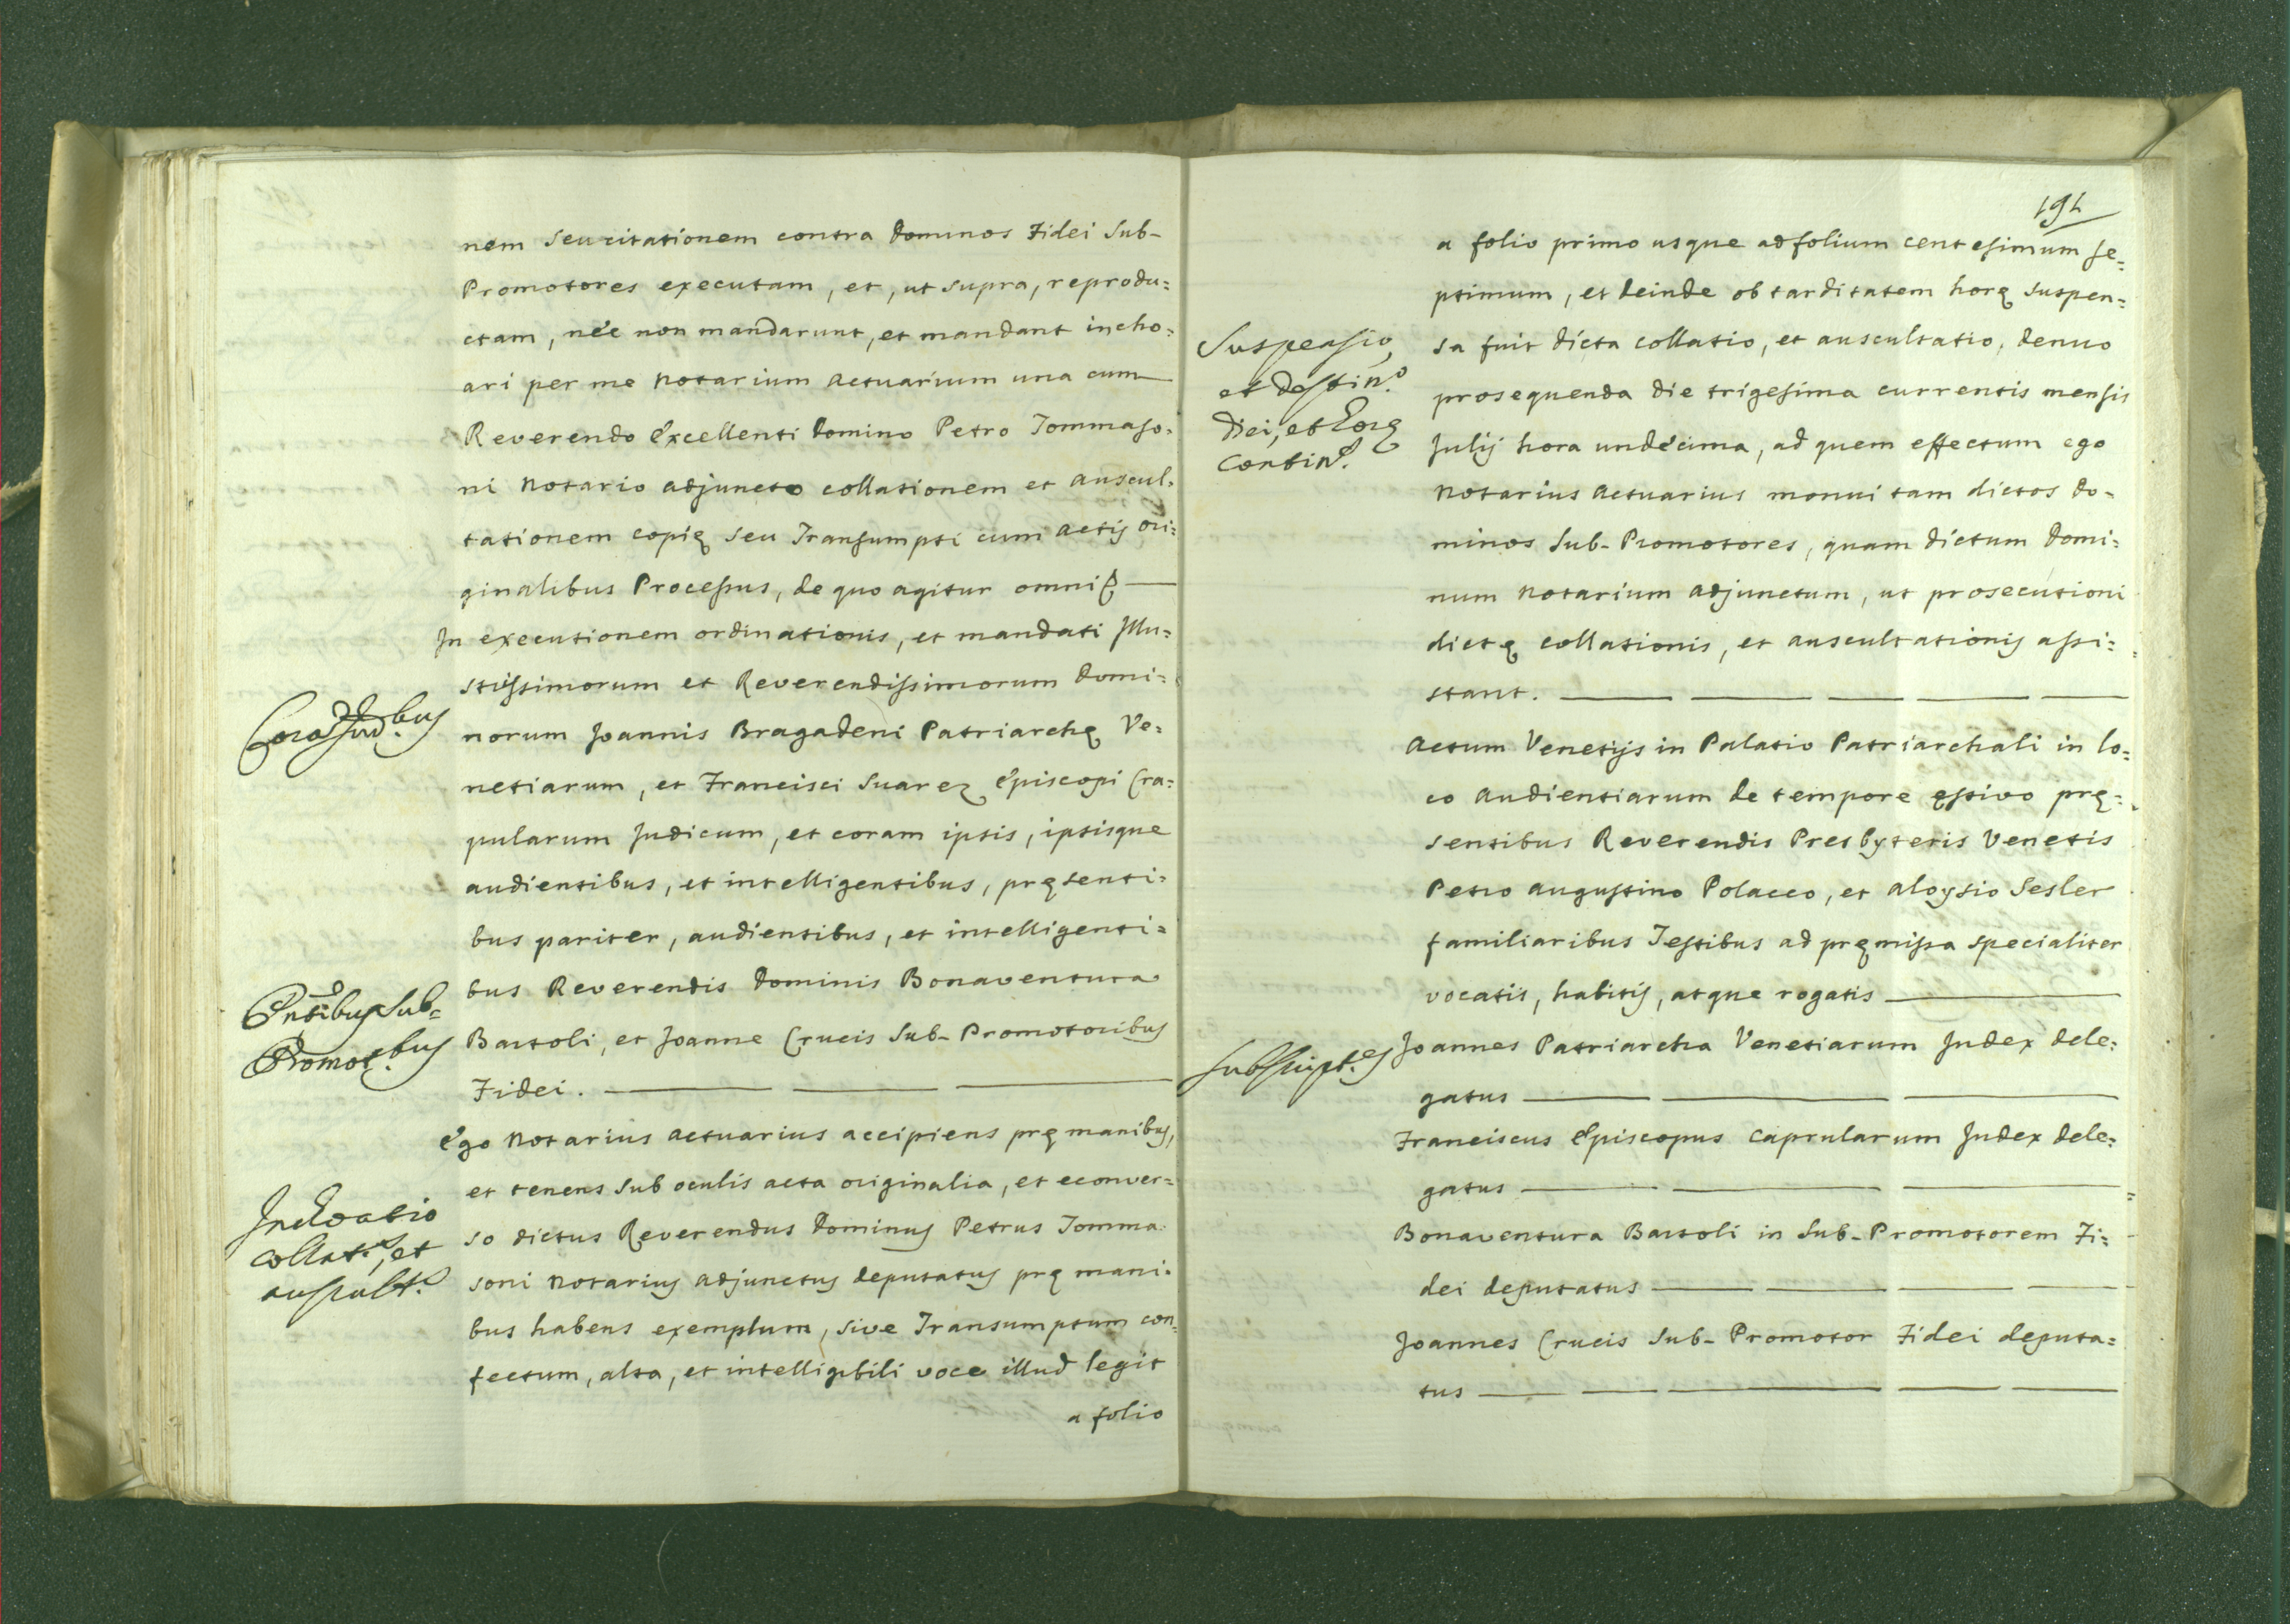 nem seu citationem contra Dominos Fidei Sub-
Promotores executam, et, ut supra, reprodu=
ctam, nec non mandarunt, et mandant incho=
ari per me Notarium Actuarium una cum
Reverendo Excellenti Domino Petro Tommaso=
ni Notario adjuncto collationem et auscul=
tationem copię seu Transumpti cum actis ori=
ginalibus Processus, de quo agitur omni
In executionem ordinationis, et mandati Illu=
strissimorum et Reverendissimorum Domi=
Corā Jud.bus
norum Joannis Bragadeni Patriarchę Ve=
netiarum, et Francisci Suarez Episcopi Cra=
pularum Judicum, et coram ipsis, ipsisque
audientibus, et intelligentibus, pręsenti=
bus pariter, audientibus, et intelligenti=
bus Reverendis Dominis Bonaventura
Pntibus Sub=
Promot.bus
Bartoli, et Joanne Crucis Sub-Promotoribus
Fidei.
Ego Notarius Actuarius accipiens prę manibus,
et tenens sub oculis acta originalia, et econver=
Inchoatio
collat.s, et
auscult.s
so dictus Reverendus Dominus Petrus Tomma=
soni Notarius adjunctus deputatus prę mani=
bus habens exemplum, sive Transumptum con=
fectum, alta, et intelligibili voce illud legit
a folio
191
a folio primo usque ad folium centesimum se=
ptimum, et deinde ob tarditatem horę suspen=
Suspensio,
et destin.o
Diei, et horę
contin.s
sa fuit dicta collatio, et auscultatio, denuo
prosequenda die trigesima currentis mensis
Julij hora undecima, ad quem effectum ego
Notarius Actuarius monui tam dictos Do=
minos Sub-Promotores, quam dictum Domi=
num Notarium adjunctum, ut prosecutioni
dictę collationis, et auscultationis assi=
stant.
Actum Venetijs in Palatio Patriarchali in lo=
co Audientiarum de tempore ęstivo prę=
sentibus Reverendis Presbyteris Venetis
Petro Augustino Polacco, et Aloysio Sesler
familiaribus Testibus ad pręmissa specialiter
vocatis, habitis, atque rogatis
Subscript.es
Joannes Patriarcha Venetiarum Judex dele=
gatus
Franciscus Episcopus Caprularum Judex dele=
gatus
Bonaventura Bartoli in Sub-Promotorem Fi=
dei deputatus
Joannes Crucis Sub-Promotor Fidei deputa=
tus